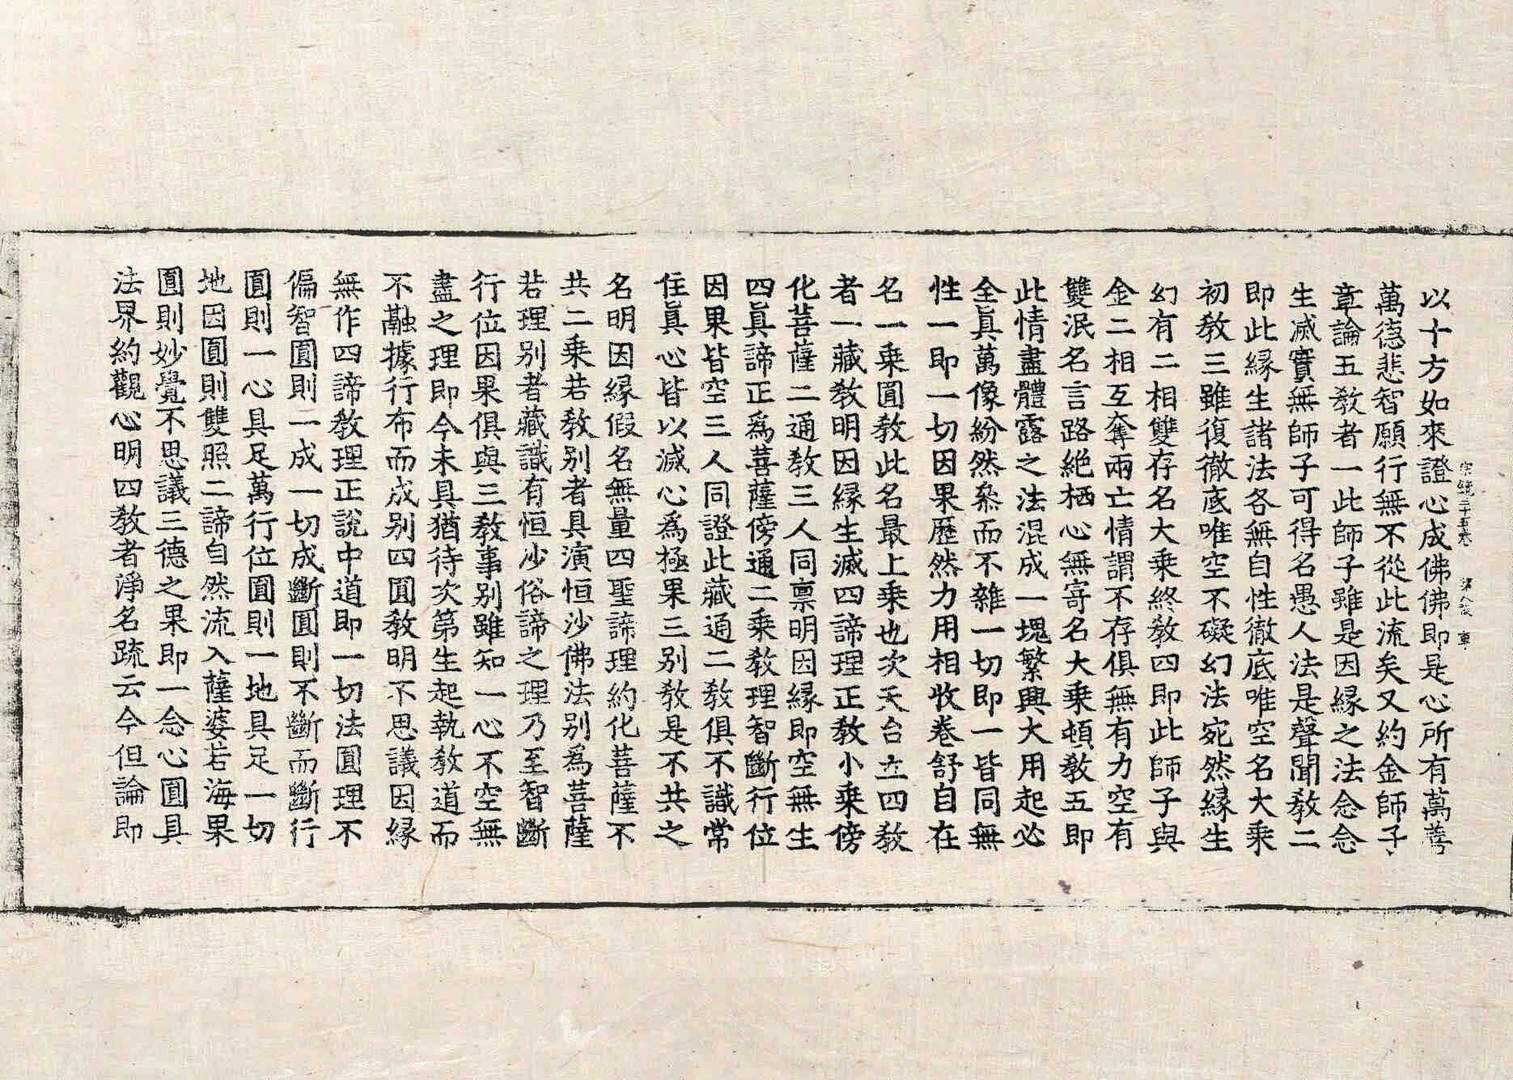 宗鏡三十五卷 第八張
以十方如來證心成佛佛即是心所有萬善
萬德悲智願行無不從此流矣又約金師子
章論五敎者一此師子雖是因緣之法念念
生滅實無師子可得名愚人法是聲聞敎二
即此緣生諸法各無自性徹底唯空名大乘
初敎三雖復徹底唯空不礙幻法宛然緣生
幻有二相雙存名大乘終敎四即此師子與
金二相互奪兩亡情謂不存俱無有力空有
雙泯名言路絶栖心無寄名大乘頓敎五即
此情盡體露之法混成一塊繁興大用起必
全眞萬像紛然叅而不雜一切即一皆同無
性一即一切因果歷然力用相收卷舒自在
名一乘圓敎此名最上乘也次天台立四敎
者一藏敎明因緣生滅四諦理正敎小乘傍
化菩薩二通敎三人同稟明因緣即空無生
四眞諦正爲菩薩傍通二乘敎理智斷行位
因果皆空三人同證此藏通二敎俱不識常
住眞心皆以滅心爲極果三別敎是不共之
名明因緣假名無量四聖諦理約化菩薩不
共二乘若敎別者具演恒沙佛法別爲菩薩
若理別者藏識有恒沙俗諦之理乃至智斷
行位因果俱與三敎事別雖知一心不空無
盡之理即今未具猶待次第生起執敎道而
不融據行布而成別四圓敎明不思議因緣
無作四諦敎理正說中道即一切法圓理不
偏智圓則一成一切成斷圓則不斷而斷行
圓則一心具足萬行位圓則一地具足一切
地因圓則雙照二諦自然流入薩婆若海果
圓則妙覺不思議三德之果即一念心圓具
法界約觀心明四敎者淨名疏云今但論即